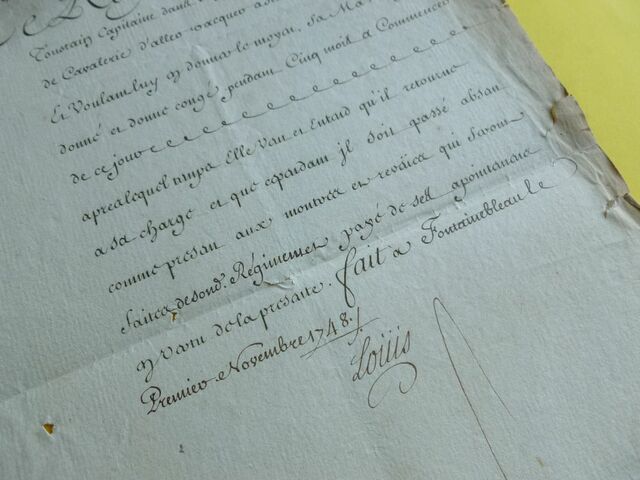 Capitaine dans
de Cavalerie d'aller vacquer a ses
Et Voulant luy en donner le moyen, Sa Ma
donné et donne congé pendant Cinq mois a Commencer
de ce jour
apres lequel temps Elle veut et Entend qu'il retourne
a sa charge et que cependant il soit passé absent
comme present aux montres et reveües qui seront
faites de sond. Régiment et payé de ses apointemens
en vertu de la presente. fait a Fontainebleau le
Premier Novembre 1748./.
Loüis